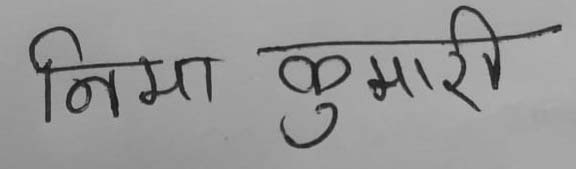 निमा कुमारी